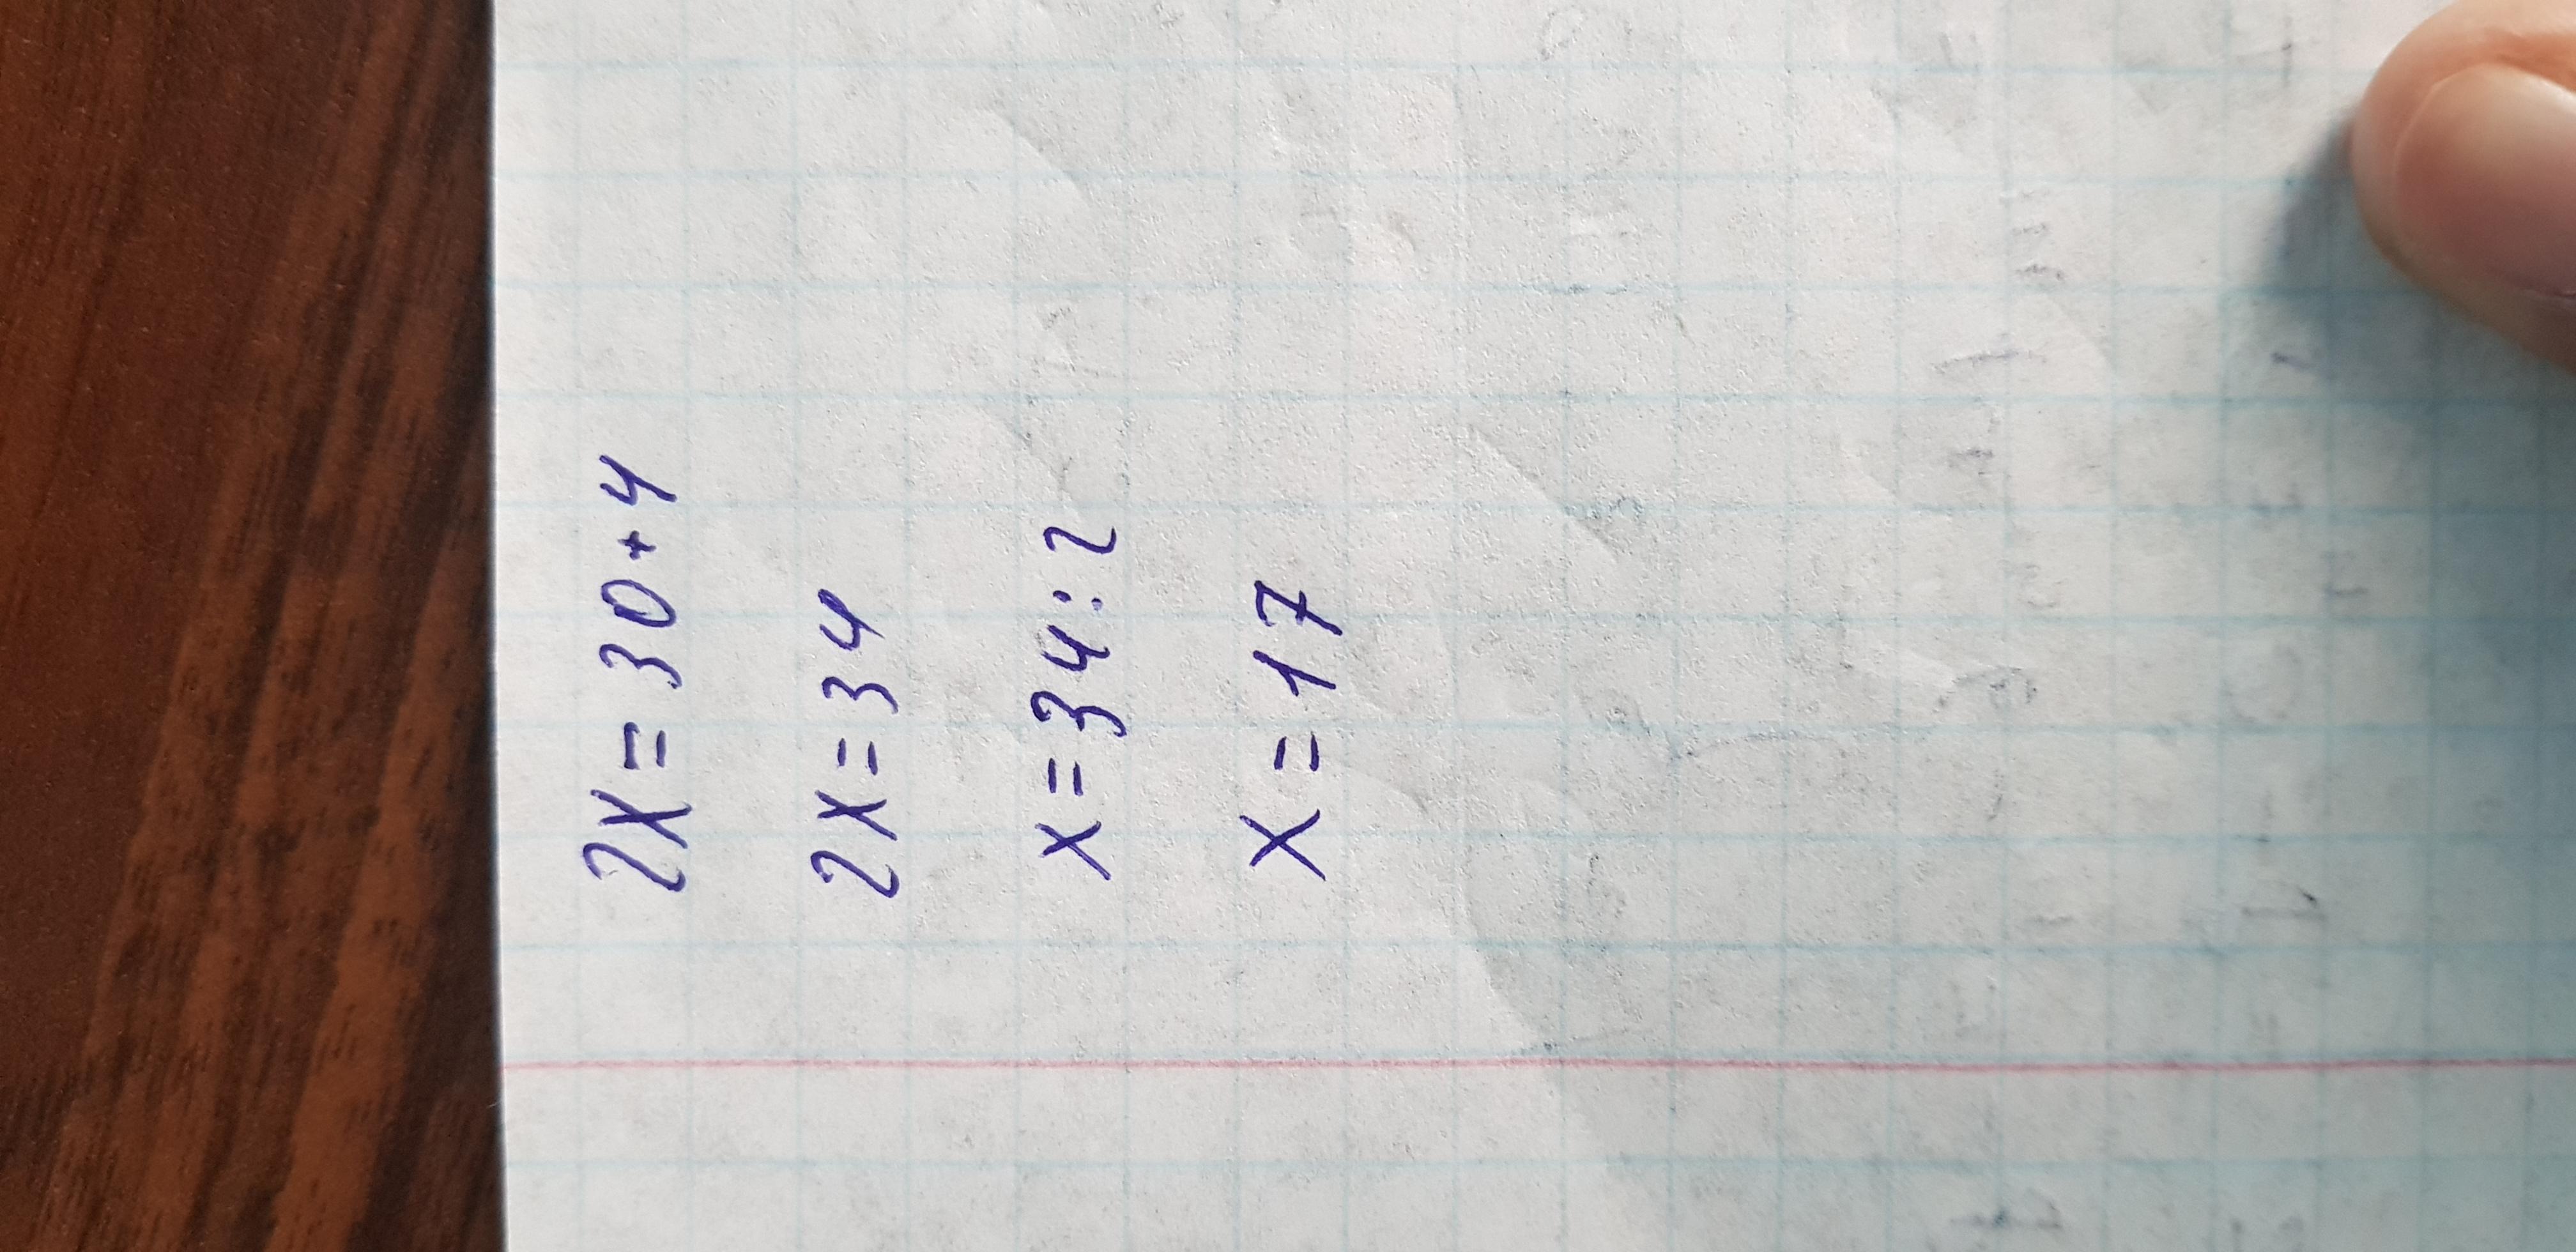 2x = 30 + 4
2x = 34
x = 34 : 2
x = 17